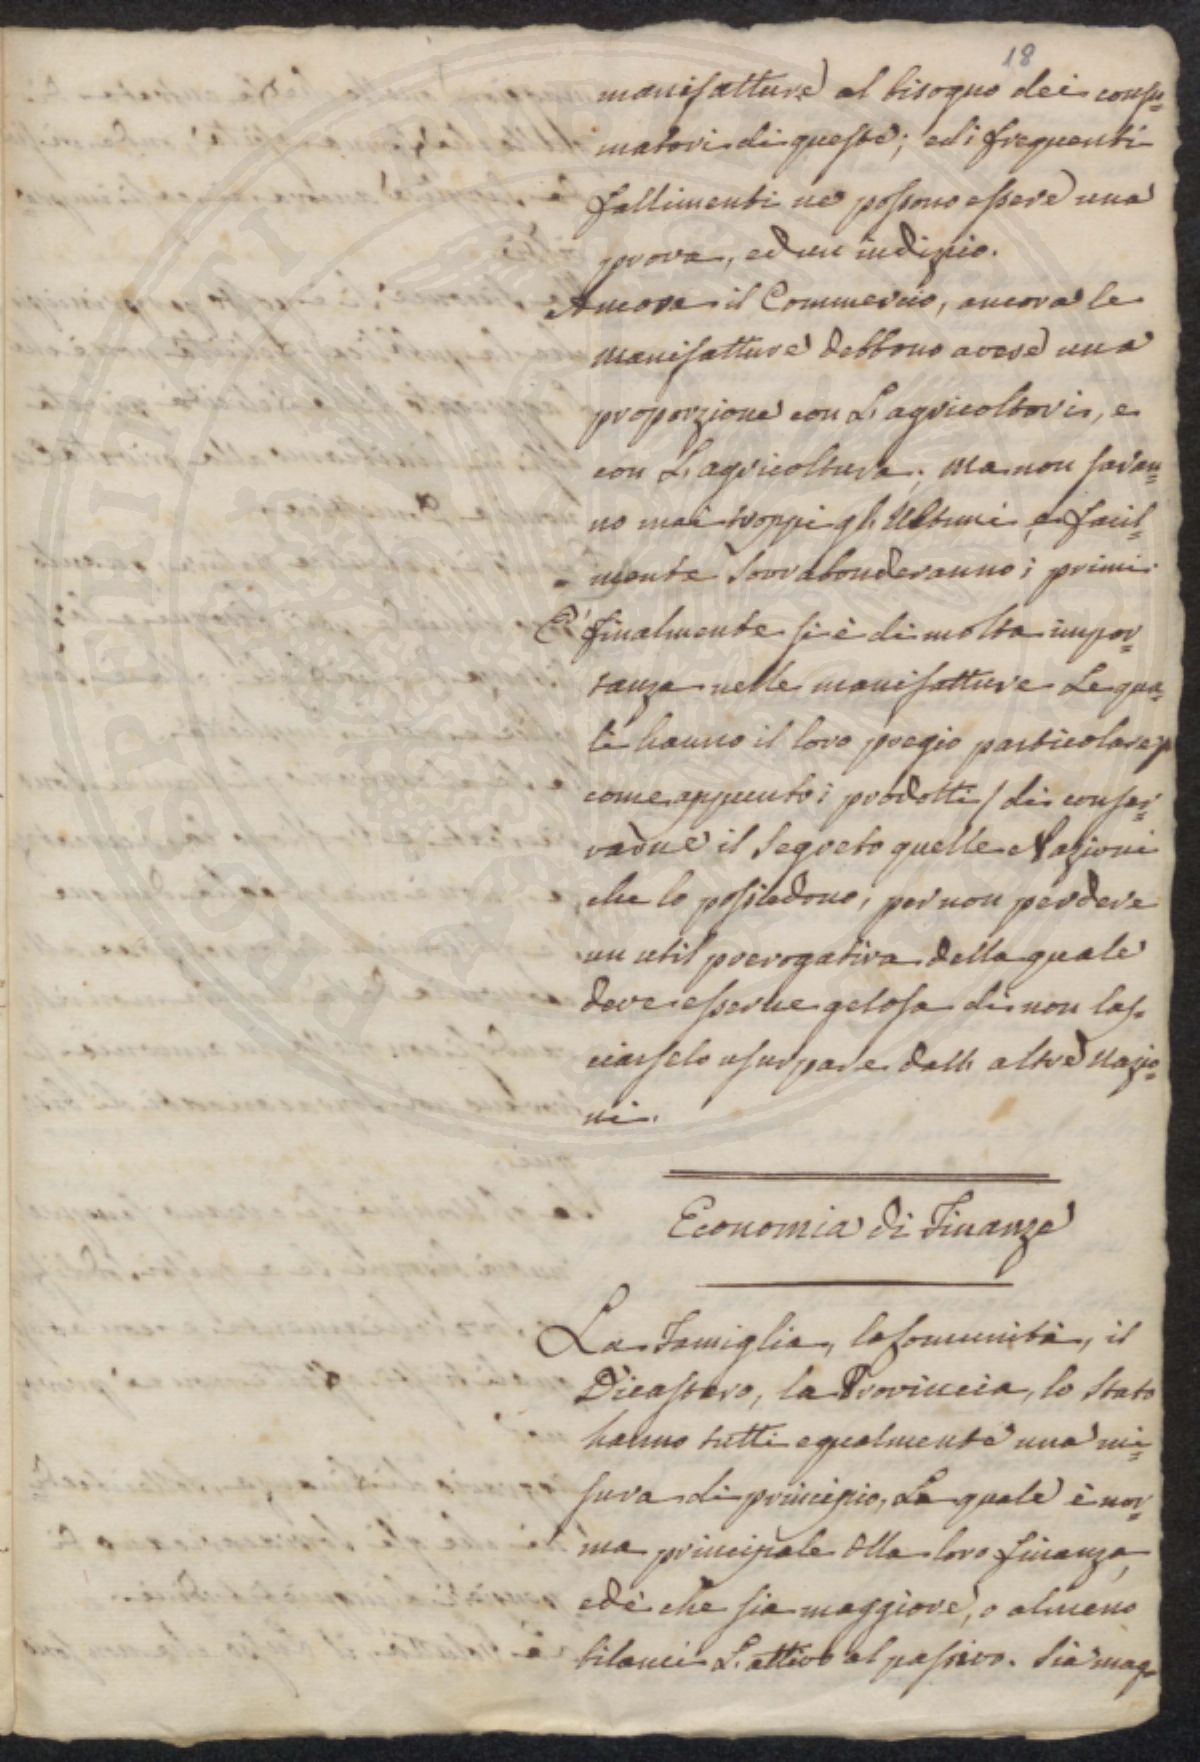 18
manifatture al bisogno dei consu=
matori di queste; ed i frequenti
fallimenti ne possono essere una
prova, ed un indizio.
Ancora il Commercio, ancora le
manifatture debbono avere una
proporzione con L'agricoltori, e
con L'agricoltura; ma non saran=
no mai troppi gli Ultimi, e facil=
mente Sovrabonderanno i primi.
E' finalmente si è di molta impor=
tanza nelle manifatture Le qua=
li hanno il loro pregio particolare,
come appunto i prodotti / di conser=
varne il Segreto quelle Nazioni
che lo possiedono, per non perdere
un util prerogativa della quale
deve esserne gelosa di non las=
ciarselo usurpare dall' altre Nazio=
ni.
Economia di Finanze
La Famiglia, la Comunità, il
Dicastero, la Provincia, lo Stato
hanno tutti egualmente una mi=
sura di principio, La quale è nor=
ma principale alla loro finanza,
ed è che sia maggiore, o almeno
bilanci L'attivo al passivo. Sia mag=